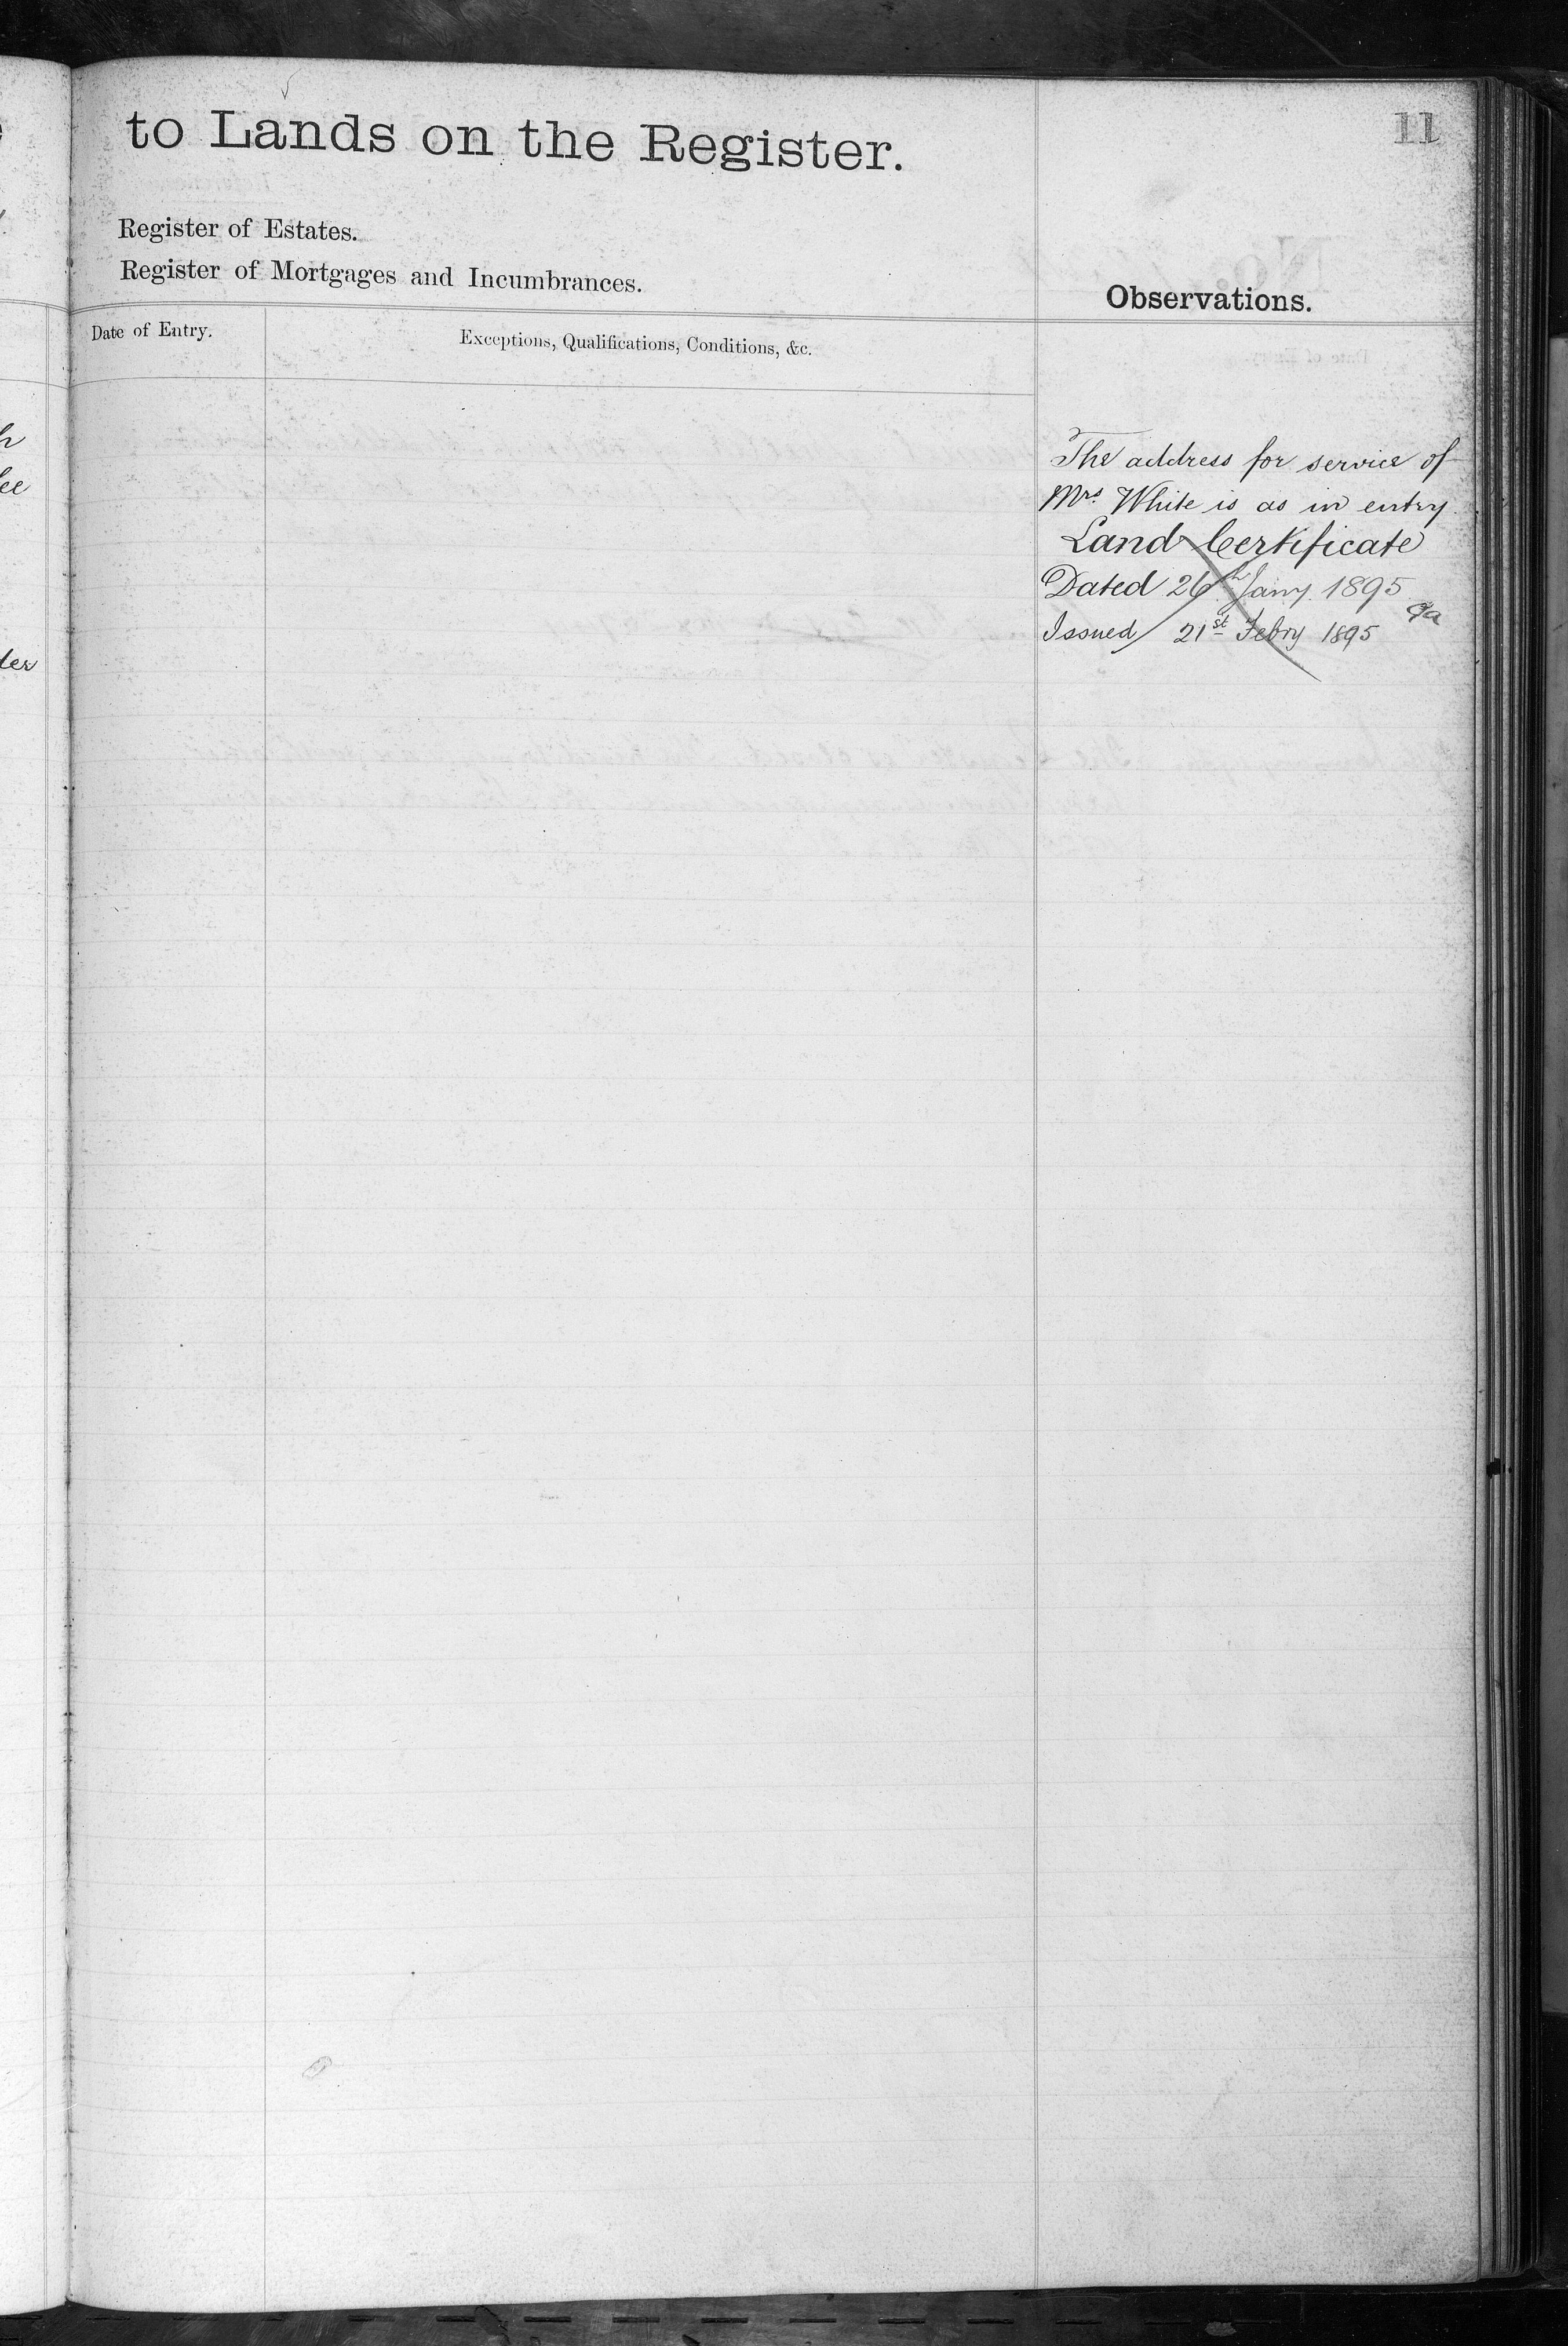 11
to Lands on the Register.
Register of Estates.
Register of Mortgages and Incumbrances.
Observations.
Date of Entry.
Exceptions, Qualifications, Conditions, &c.
The address for service of
Mrs. White is as in entry.
Land Certificate
Dated 26th Jany. 1895
Issued 21st Febry 1895